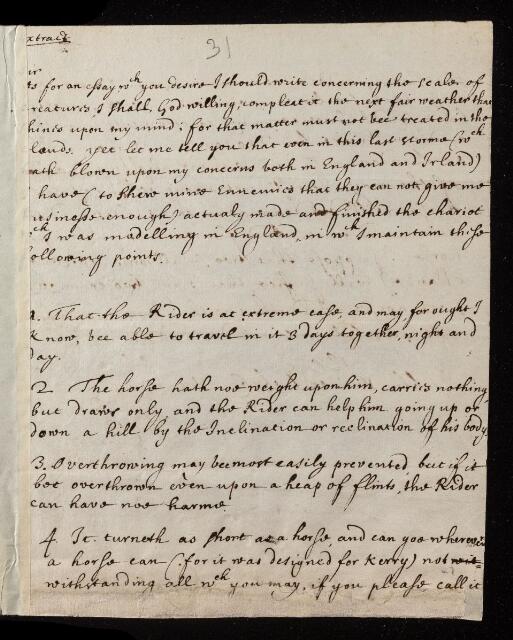 xtract
31
ur
ts for an essay wch you desire I should write concerning the scales of
reatures, I shall, God willing, compleat it the next fair weather that
hines upon my mind: for that matter must not bee treated in the
louds. yet let me tell you that even in this last storme (wch
ath blown upon my concerns both in England and Irland)
have (to shew mine Ennemies that they can not give me
usinesse enough) actualy made and finished the chariot
ch I was madelling in England, in wch I maintain these
ollowing points.
1. That the Rider is at extreme ease, and may for ought I
know, bee able to travel in it 3 days together, night and
day.
2 The horse hath noe weight upon him, carries nothing
but draws only, and the Rider can help him going up or
down a hill by the Inclination or reclination of his body.
3. Overthrowing may bee most easily prevented but if it
bee overthrown even upon a heap of flints, the Rider
can have noe harme.
4 It turneth as short as a horse and can goe wherever
a horse can (for it was designed for Kerry) not wit
withstanding all wch you may, if you please call it